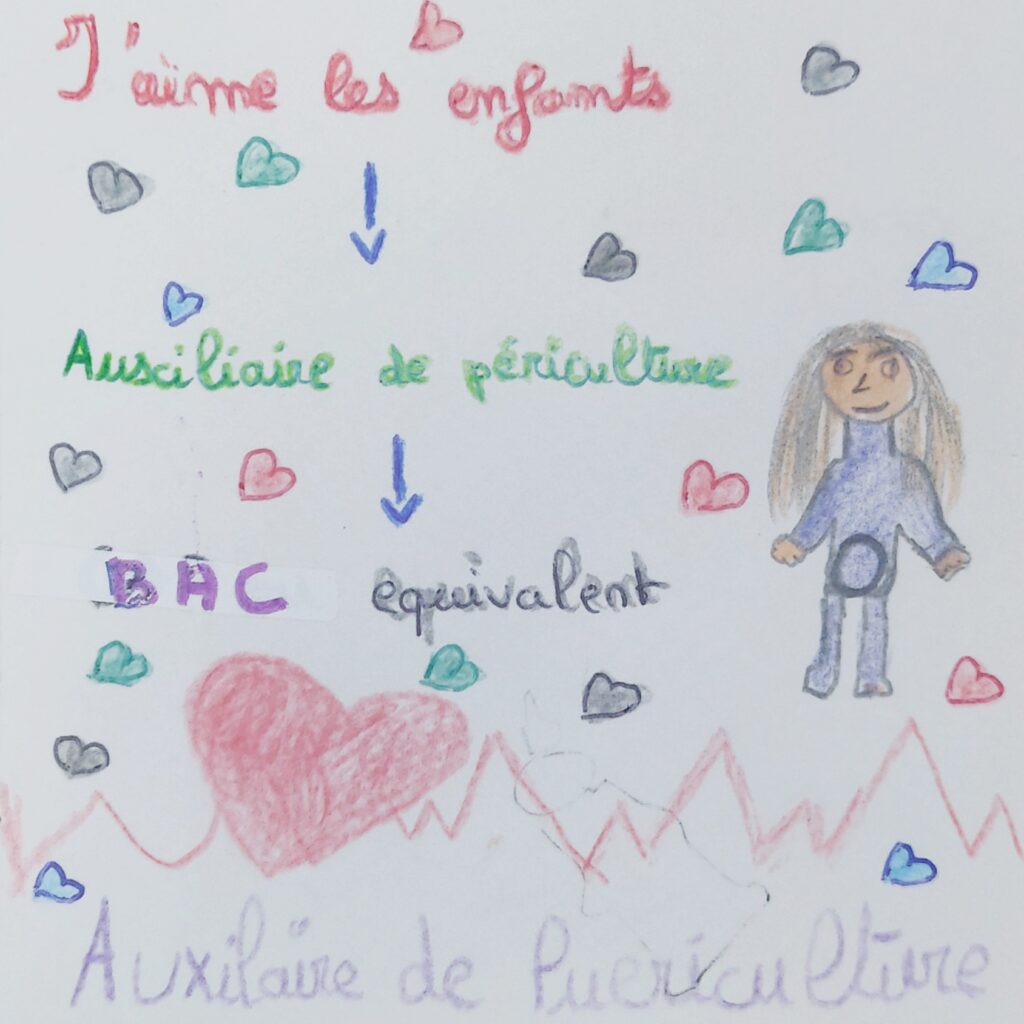 J'aime les enfants
Auxciliaire de périculture
BAC équivalent
Auxilaire de Puériculture